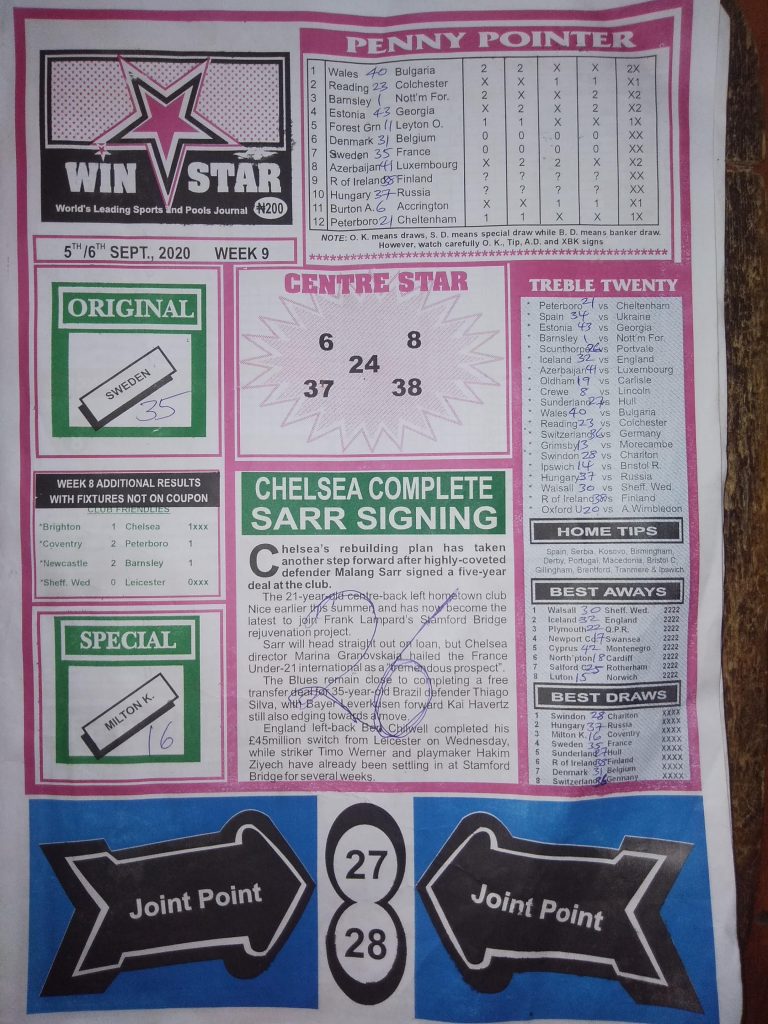 WIN STAR
World's Leading Sports and Pools Journal ₦200
5TH/6TH SEPT., 2020 WEEK 9
PENNY POINTER
1 Wales 40 Bulgaria 2 2 X X 2X
2 Reading 23 Colchester X X 1 1 X1
3 Barnsley 1 Nott'm For. 2 2 X X X2
4 Estonia 43 Georgia X 2 X 2 X2
5 Forest Grn 11 Leyton O. 1 1 X X 1X
6 Denmark 31 Belgium 0 0 0 0 XX
7 Sweden 35 France 0 0 0 0 XX
8 Azerbaijan 41 Luxembourg X 2 2 X X2
9 R of Ireland 38 Finland ? ? ? ? XX
10 Hungary 37 Russia ? ? ? ? XX
11 Burton A. 6 Accrington X X 1 1 X1
12 Peterboro 21 Cheltenham 1 1 X X 1X
NOTE: O. K. means draws, S. D. means special draw while B. D. means banker draw.
However, watch carefully O. K., Tip, A.D. and XBK signs
ORIGINAL
SWEDEN
35
CENTRE STAR
6 8
24
37 38
TREBLE TWENTY
* Peterboro 21 vs Cheltenham
* Spain 34 vs Ukraine
* Estonia 43 vs Georgia
* Barnsley 1 vs Nott'm For.
* Scunthorpe 26 vs Portvale
* Iceland 32 vs England
* Azerbaijan 41 vs Luxembourg
* Oldham 19 vs Carlisle
* Crewe 8 vs Lincoln
* Sunderland 27 vs Hull
* Wales 40 vs Bulgaria
* Reading 23 vs Colchester
* Switzerland 36 vs Germany
* Grimsby 13 vs Morecambe
* Swindon 28 vs Charlton
* Ipswich 14 vs Bristol R.
* Hungary 37 vs Russia
* Walsall 30 vs Sheff. Wed.
* R of Ireland 38 vs Finland
* Oxford U 20 vs A.Wimbledon
HOME TIPS
Spain, Serbia, Kosovo, Birmingham,
Derby, Portugal, Macedonia, Bristol C,
Gillingham, Brentford, Tranmere & Ipswich
BEST AWAYS
1 Walsall 30 Sheff. Wed. 2222
2 Iceland 32 England 2222
3 Plymouth 22 Q.P.R. 2222
4 Newport C 17 Swansea 2222
5 Cyprus 42 Montenegro 2222
6 North'pton 18 Cardiff 2222
7 Salford C 25 Rotherham 2222
8 Luton 15 Norwich 2222
BEST DRAWS
1 Swindon 28 Charlton XXXX
2 Hungary 37 Russia XXXX
3 Milton K. 16 Coventry XXXX
4 Sweden 35 France XXXX
5 Sunderland 27 Hull XXXX
6 R of Ireland 38 Finland XXXX
7 Denmark 31 Belgium XXXX
8 Switzerland 36 Germany XXXX
WEEK 8 ADDITIONAL RESULTS
WITH FIXTURES NOT ON COUPON
CLUB FRIENDLIES
*Brighton 1 Chelsea 1xxx
*Coventry 2 Peterboro 1
*Newcastle 2 Barnsley 1
*Sheff. Wed 0 Leicester 0xxx
SPECIAL
MILTON K.
16
CHELSEA COMPLETE
SARR SIGNING
Chelsea's rebuilding plan has taken
another step forward after highly-coveted
defender Malang Sarr signed a five-year
deal at the club.
The 21-year-old centre-back left hometown club
Nice earlier this summer and has now become the
latest to join Frank Lampard's Stamford Bridge
rejuvenation project.
Sarr will head straight out on loan, but Chelsea
director Marina Granovskaia hailed the France
Under-21 international as a "tremendous prospect".
The Blues remain close to completing a free
transfer deal for 35-year-old Brazil defender Thiago
Silva, with Bayer Leverkusen forward Kai Havertz
still also edging towards a move.
England left-back Ben Chilwell completed his
£45million switch from Leicester on Wednesday,
while striker Timo Werner and playmaker Hakim
Ziyech have already been settling in at Stamford
Bridge for several weeks.
26
Joint Point
27
28
Joint Point